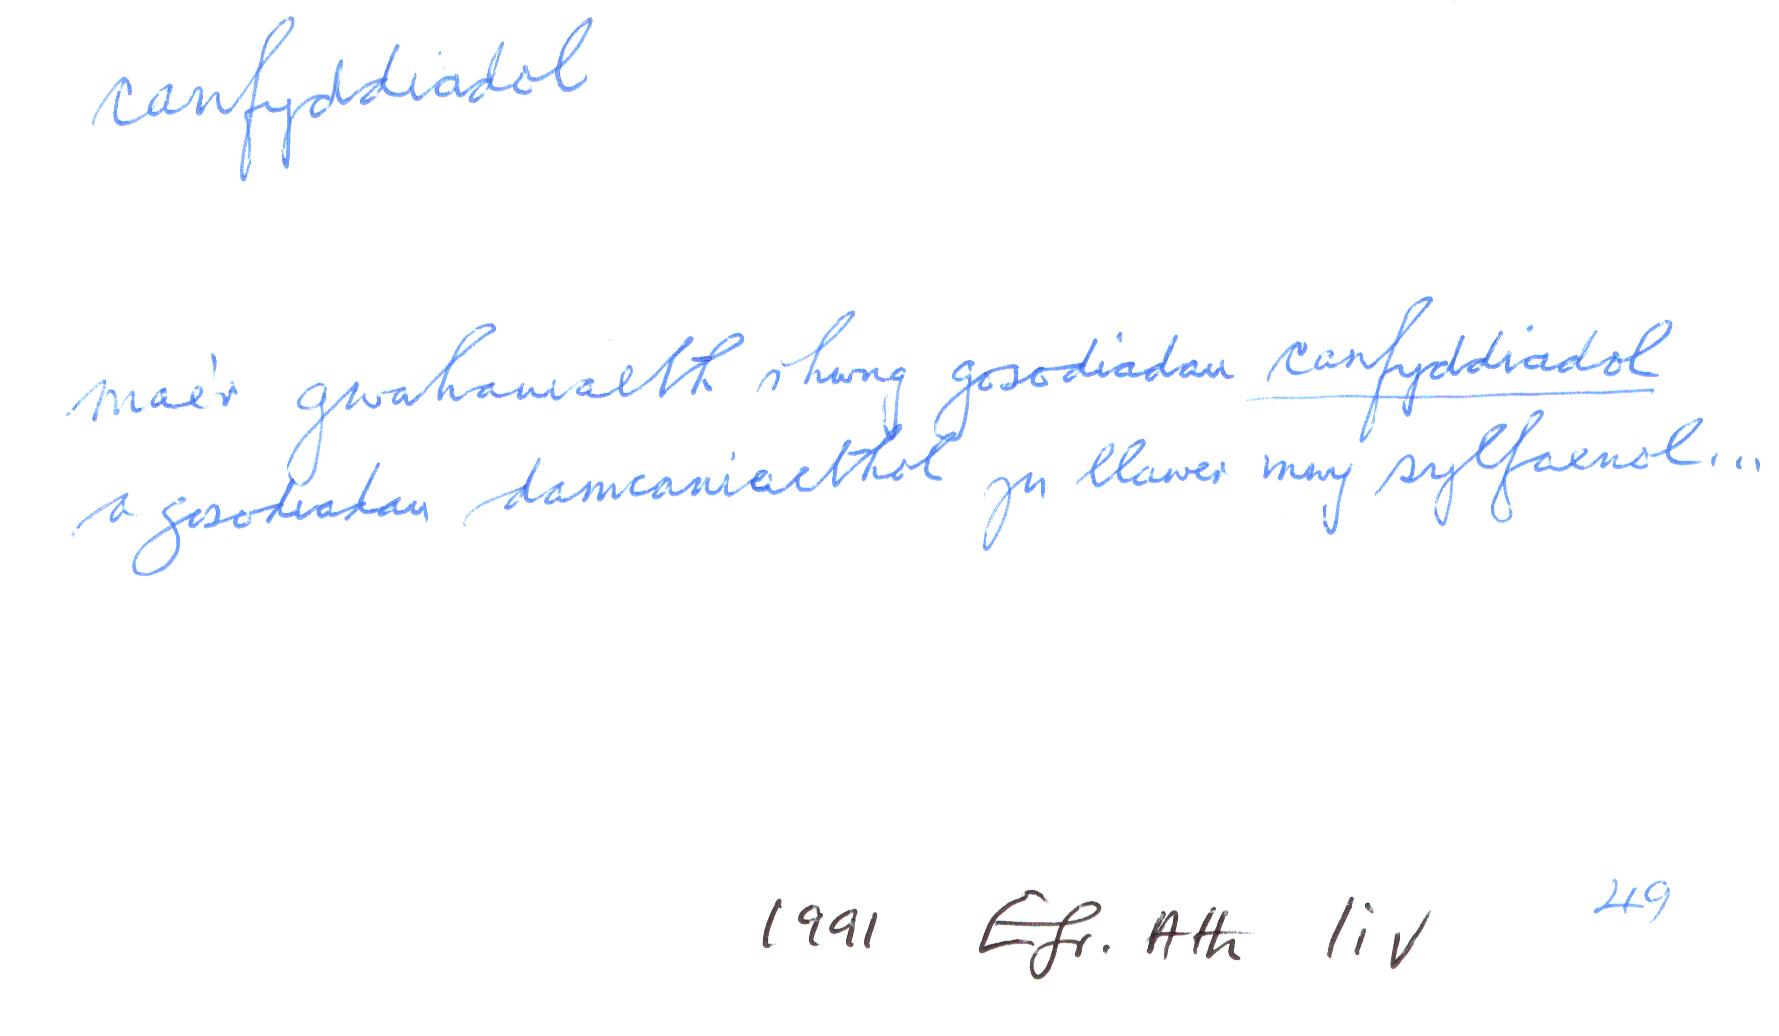 canfyddiadol
mae'r gwahaniaeth rhwng gosodiadau canfyddiadol
a gosodiadau damcaniaethol yn llawer mwy sylfaenol...
1991 Efr. Ath liv 49